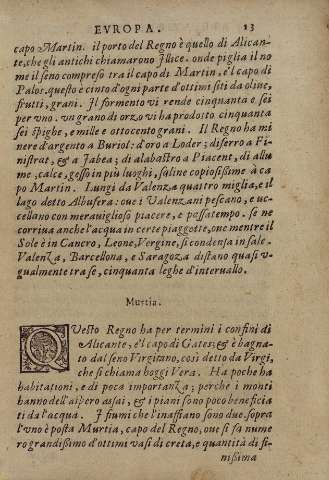 EVROPA. 13
capo Martin. il porto del Regno è quello di Alican-
te, che gli antichi chiamarono Illice. onde piglia il no
me il seno compreso tra il capo di Martin, e'l capo di
Palos. questo è cinto d'ogni parte d'ottimi siti da oliue,
frutti, grani. Il formento vi rende cinquanta e sei
per vno. un grano di orzo vi ha prodotto cinquanta
sei spighe, e mille e ottocento grani. Il Regno ha mi
nere d'argento a Buriol: d'oro a Loder; di ferro a Fi-
nistrat, & a Jabea; di alabastro a Piacent, di allu
me, calce, gesso in più luoghi, saline copiosissime à ca
po Martin. Lungi da Valenza quattro miglia, e il
lago detto Albufera: oue i Valenzani pescano, e uc-
cellano con merauiglioso piacere, e passatempo. se ne
corriua anche l'acqua in certe piaggette, oue mentre il
Sole è in Cancro, Leone, Vergine, si condensa in sale.
Valenza, Barcellona, e Saragoza distano quasi v-
gualmente tra se, cinquanta leghe d'interuallo.
Murtia.
QVesto Regno ha per termini i confini di
Alicante, e'l capo di Gates; & è bagna-
to dal seno Virgitano, così detto da Virgi,
che si chiama hoggi Vera. Ha poche ha
habitationi, e di poca importanza; perche i monti
hanno dell'aspero assai, & i piani sono poco beneficia
ti da l'acqua. I fiumi che l'inaffiano sono due. sopra
l'vno è posta Murtia, capo del Regno, oue si fa nume
ro grandissimo d'ottimi vasi di creta, e quantità di fi-
nissima